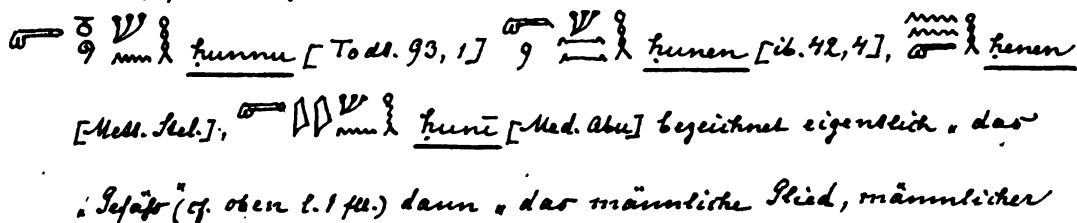 ḥunnu [Todt. 93, 1] ḥunen [ib. 42, 4], ḥenen
[Mett. Stel.], ḥunī [Med. Abu] bezeichnet eigentlich „das
„Gefäß" (cf. oben l. 1 fll.) dann „das männliche Glied, männlicher